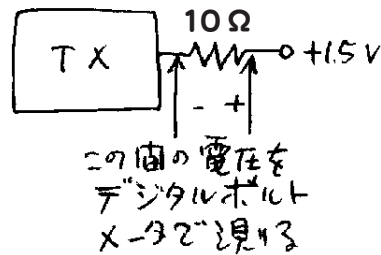 10Ω
TX
+1.5V
- +
この間の電圧を
デジタルボルト
メータで測る